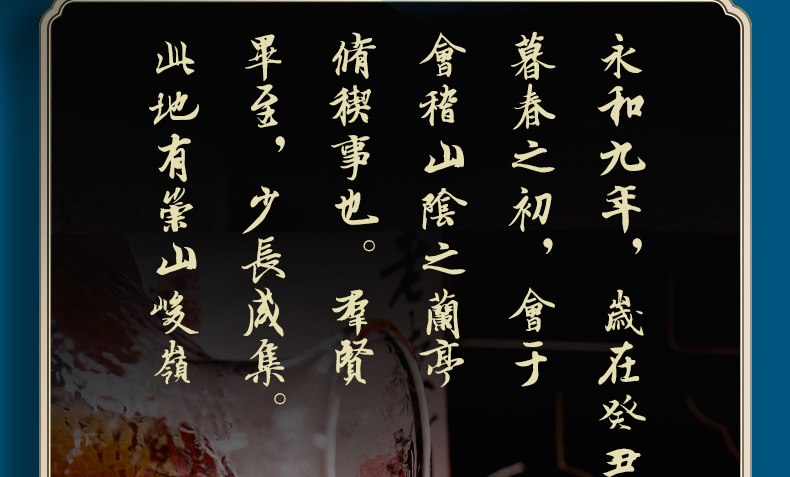 永和九年，歲在癸丑
暮春之初，會于
會稽山陰之蘭亭
脩稧事也。羣賢
畢至，少長成集。
此地有崇山峻嶺